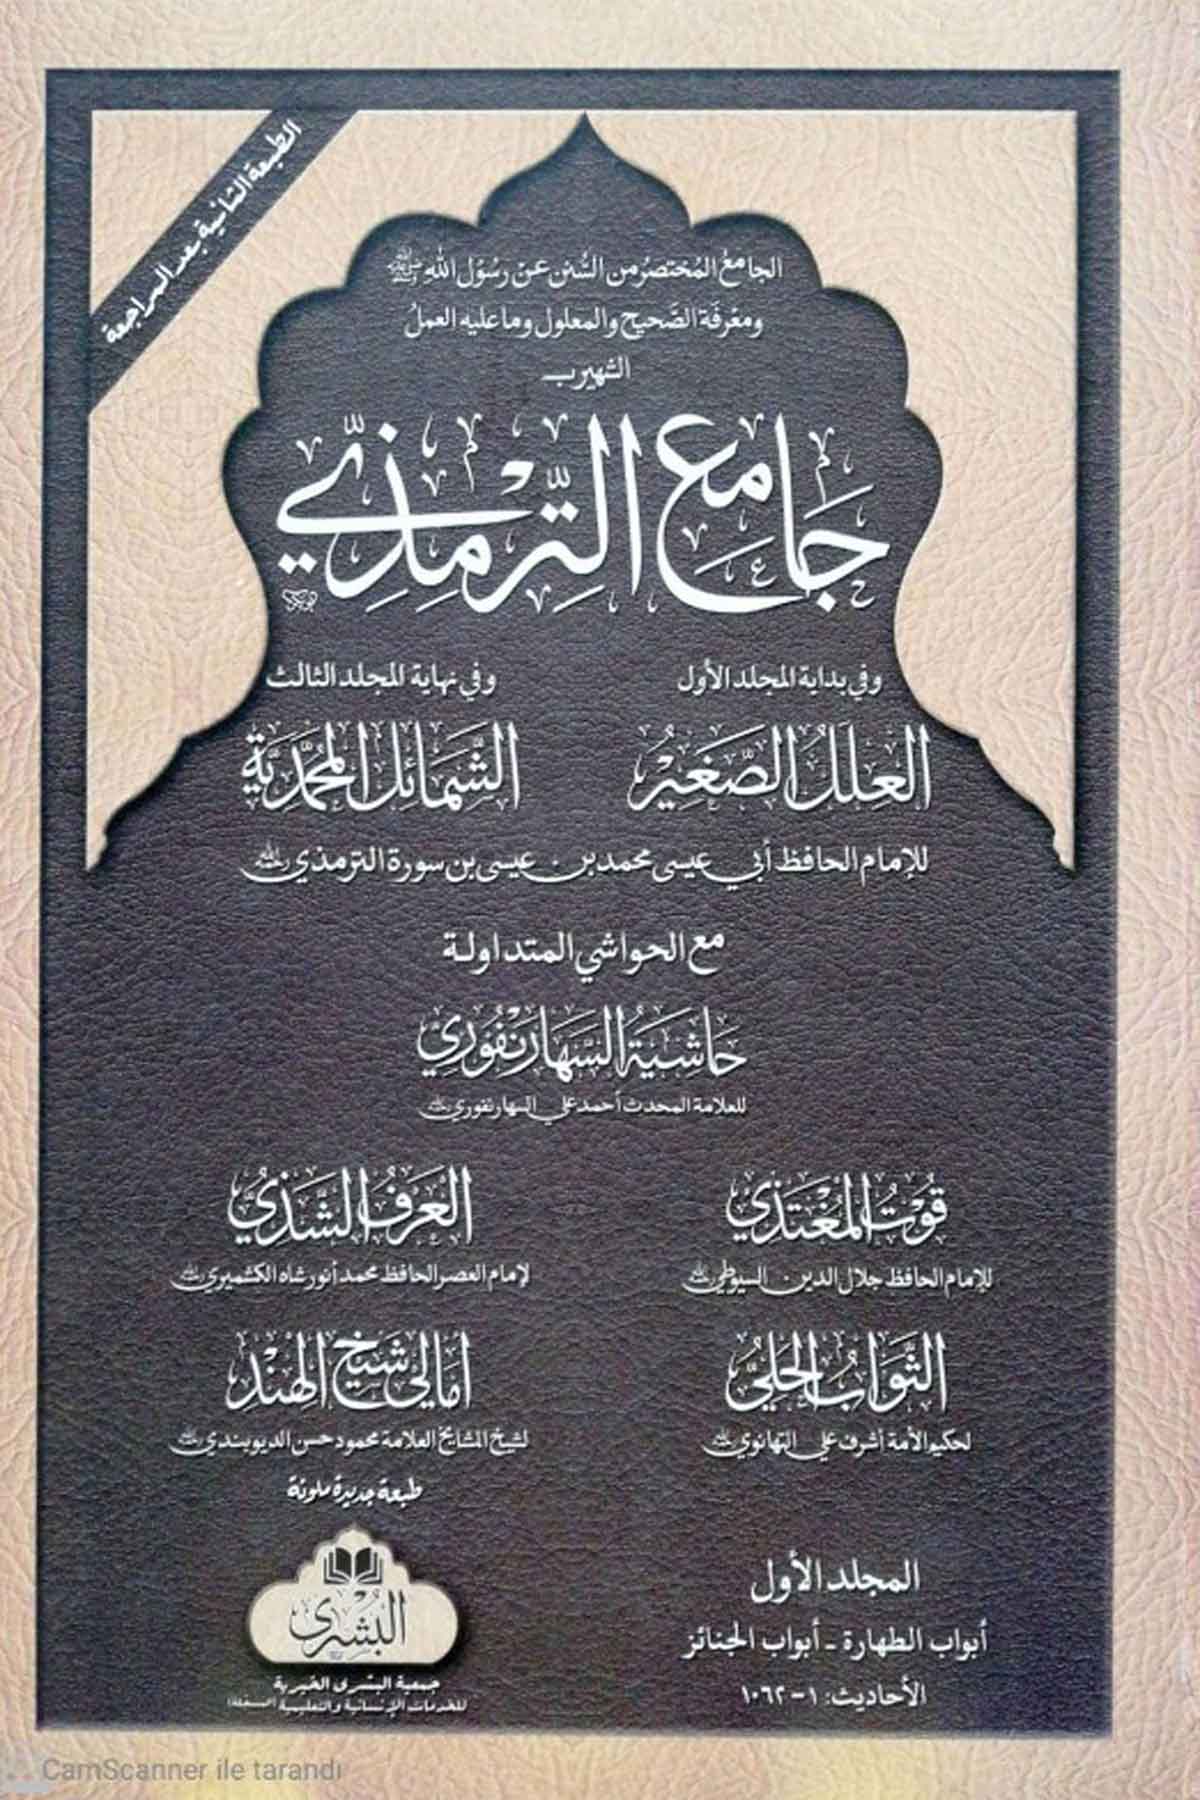 الطبعة الثانية بعد المراجعة
الجامعُ المُختصرُ من السُّنن عن رسُوْل الله ﷺ
ومعْرفَة الصَّحيح والمعلول وما عليه العملُ
الشهير بـ
جَامع التِّرمِذِيّ
وفي بداية المجلد الأول
العِلَلُ الصَّغِيْرُ
وفي نهاية المجلد الثالث
الشَّمائل المُحمَّديَّة
للإمام الحافظ أبي عيسى محمد بن عيسى بن سورة الترمذي رحمه الله
مع الحواشي المتداولة
حَاشيَةُ السَّهَارَنْفُوريّ
للعلامة المحدث أحمد علي السهارنفوري رحمه الله
قُوْتُ المُغْتَذي
للإمام الحافظ جلال الدين السيوطي رحمه الله
العَرفُ الشَّذيُّ
لإمام العصر الحافظ محمد أنور شاه الكشميري رحمه الله
الثَّوَابُ الحَليُّ
لحكيم الأمة أشرف علي التهانوي رحمه الله
أمَالي شَيخ الهنْد
لشيخ المشايخ العلامة محمود حسن الديوبندي رحمه الله
طبعة جديدة ملونة
المجلد الأول
أبواب الطهارة - أبواب الجنائز
الأحاديث: ١-١٠٦٢
البُشرى
جمعية البشرى الخيرية
للخدمات الإنسانية والتعليمية (مسجلة)
CamScanner ile tarandı